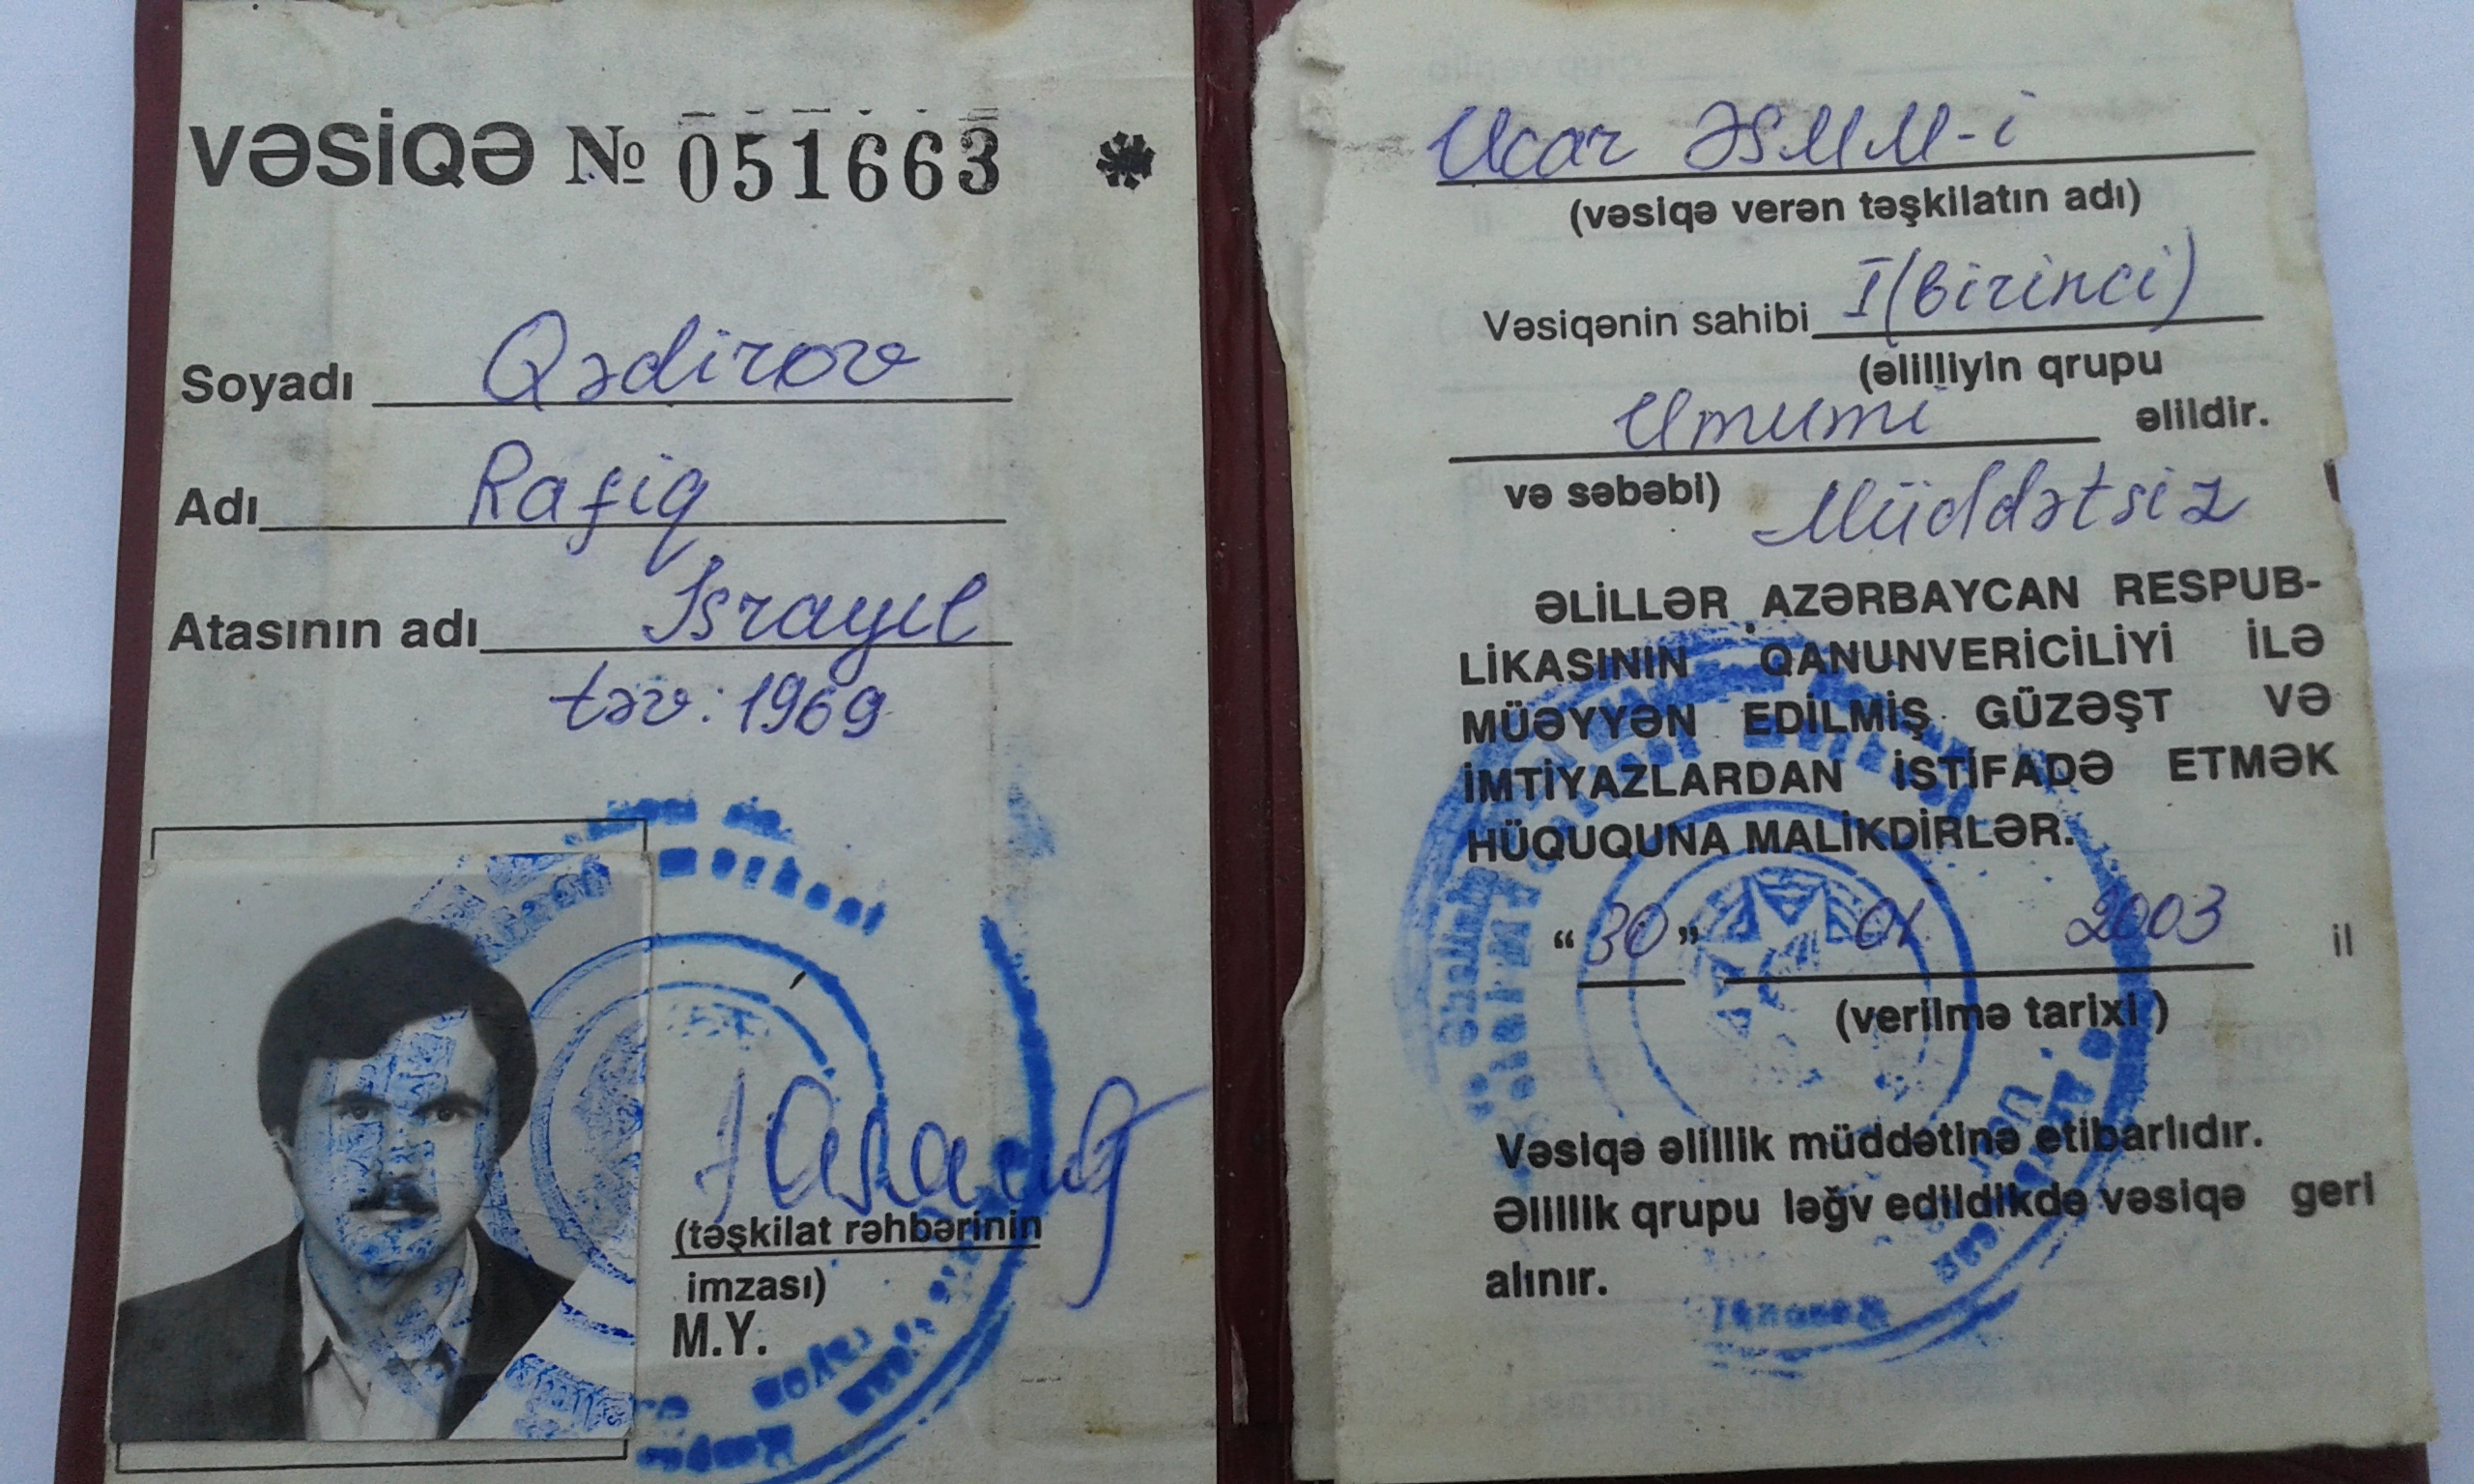 VƏSİQƏ № 051663 *
Soyadı Qədirov
Adı Rafiq
Atasının adı İsrayıl
təv: 1969
(təşkilat rəhbərinin
imzası)
M.Y.
Ucar ƏSMM-i
(vəsiqə verən təşkilatın adı)
Vəsiqənin sahibi I (birinci)
(əlilliyin qrupu
Ümumi əlildir.
və səbəbi) Müddətsiz
ƏLİLLƏR AZƏRBAYCAN RESPUB-
LİKASININ QANUNVERİCİLİYİ İLƏ
MÜƏYYƏN EDİLMİŞ GÜZƏŞT VƏ
İMTİYAZLARDAN İSTİFADƏ ETMƏK
HÜQUQUNA MALİKDİRLƏR.
"30" 01 2003 il
(verilmə tarixi)
Vəsiqə əlillik müddətinə etibarlıdır.
Əlillik qrupu ləğv edildikdə vəsiqə geri
alınır.